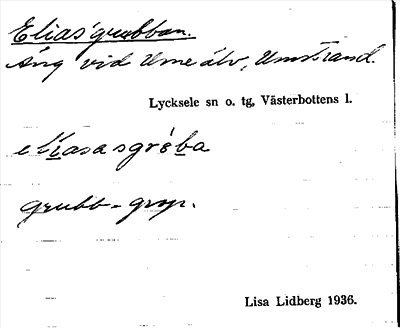 Elias'grubban.
Äng vid Ume älv, Umstrand.
Lycksele sn o. tg, Västerbottens l.
elíasasgròba
grubb = grop.
Lisa Lidberg 1936.